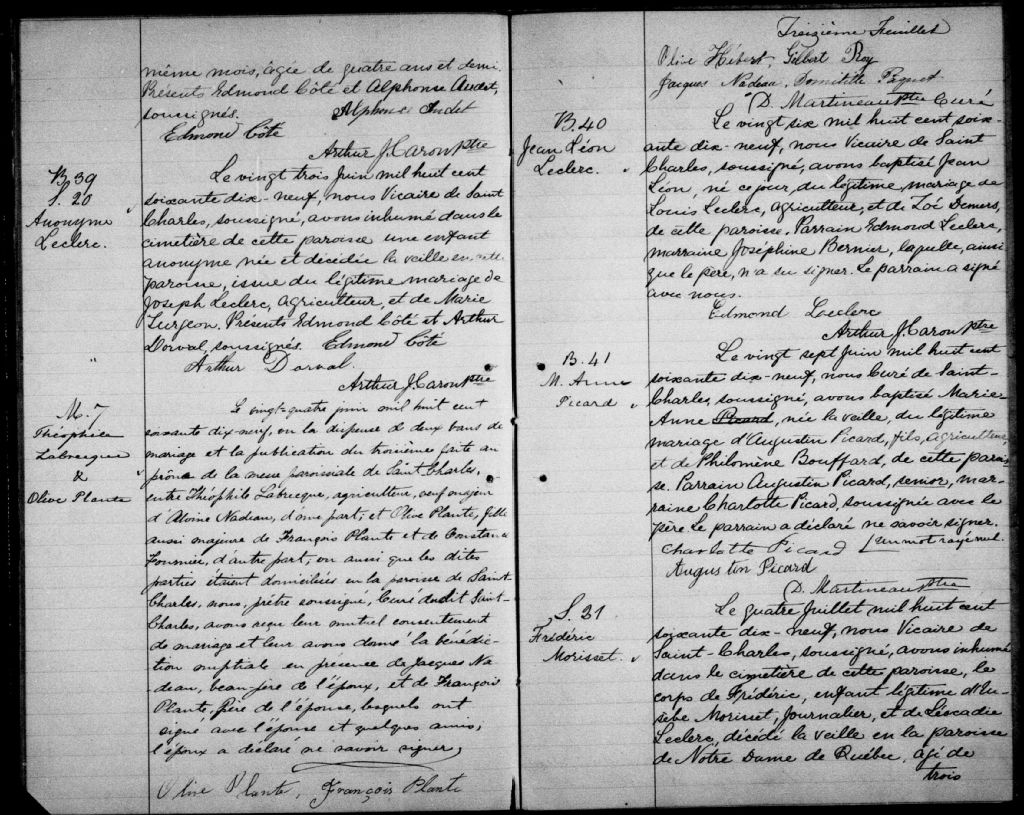 même mois, âgée de quatre ans et demi.
Présents Edmond Côté et Alphonse Audet,
soussignés. Alphonse Audet
Edmond Côté
Arthur J. Caron Ptre
B. 39
S. 20
Anonyme
Leclerc.
Le vingt trois Juin mil huit cent
soixante dix-neuf, nous Vicaire de Saint
Charles, soussigné, avons inhumé dans le
cimetière de cette paroisse une enfant
anonyme née et décédée la veille en cette
paroisse, issue du légitime mariage de
Joseph Leclerc, agriculteur, et de Marie
Turgeon. Présents Edmond Côté et Arthur
Dorval, soussignés. Edmond Côté
Arthur Dorval.
Arthur J. Caron Ptre
M. 7
Théophile
Labrecque
&
Olive Plante
Le vingt-quatre juin mil huit cent
soixante dix-neuf, vu la dispense de deux bans de
mariage et la publication du troisième faite au
prône de la messe paroissiale de Saint Charles,
entre Théophile Labrecque, agriculteur, veuf majeur
d'Aloine Nadeau, d'une part; et Olive Plante, fille
aussi majeure de François Plante et de Constance
Fournier, d'autre part; vu aussi que les dites
parties étaient domiciliées en la paroisse de Saint-
Charles, nous, prêtre soussigné, Curé du dit Saint-
Charles, avons reçu leur mutuel consentement
de mariage et leur avons donné la bénédic-
tion nuptiale en présence de Jacques Na-
deau, beau-père de l'époux, et de François
Plante, père de l'épouse, lesquels ont
signé avec l'épouse et quelques amis;
l'époux a déclaré ne savoir signer,
Olive Plante, François Plante
Treizième Feuillet
Olive Hébert Gilbert Roy
Jacques Nadeau, Domitille Paquet
D. Martineau Ptre Curé
B. 40
Jean Léon
Leclerc.
Le vingt six mil huit cent soix-
ante dix-neuf, nous Vicaire de Saint
Charles, soussigné, avons baptisé Jean
Léon, né ce jour, du légitime mariage de
Louis Leclerc, agriculteur, et de Zoé Demers,
de cette paroisse. Parrain Edmond Leclerc,
marraine Joséphine Bernier, laquelle, ainsi
que le père, n'a su signer. Le parrain a signé
avec nous.
Edmond Leclerc
Arthur J. Caron Ptre
B. 41
M. Anne
Picard
Le vingt sept Juin mil huit cent
soixante dix-neuf, nous Curé de Saint-
Charles, soussigné, avons baptisé Marie
Anne Picard, née la veille, du légitime
mariage d'Augustin Picard, fils, agriculteur,
et de Philomène Bouffard, de cette parois-
se. Parrain Augustin Picard, senior, mar-
raine Charlotte Picard, soussignée avec le
père. Le parrain a déclaré ne savoir signer.
Charlotte Picard [Un mot rayé nul.
Augustin Picard
D. Martineau Ptre
S. 21
Frédéric
Morisset.
Le quatre Juillet mil huit cent
soixante dix-neuf, nous Vicaire de
Saint-Charles, soussigné, avons inhumé
dans le cimetière de cette paroisse, le
corps de Frédéric, enfant légitime d'Eu-
sèbe Morisset, Journalier, et de Léocadie
Leclerc, décédé la veille en la paroisse
de Notre Dame de Québec, âgé de
trois